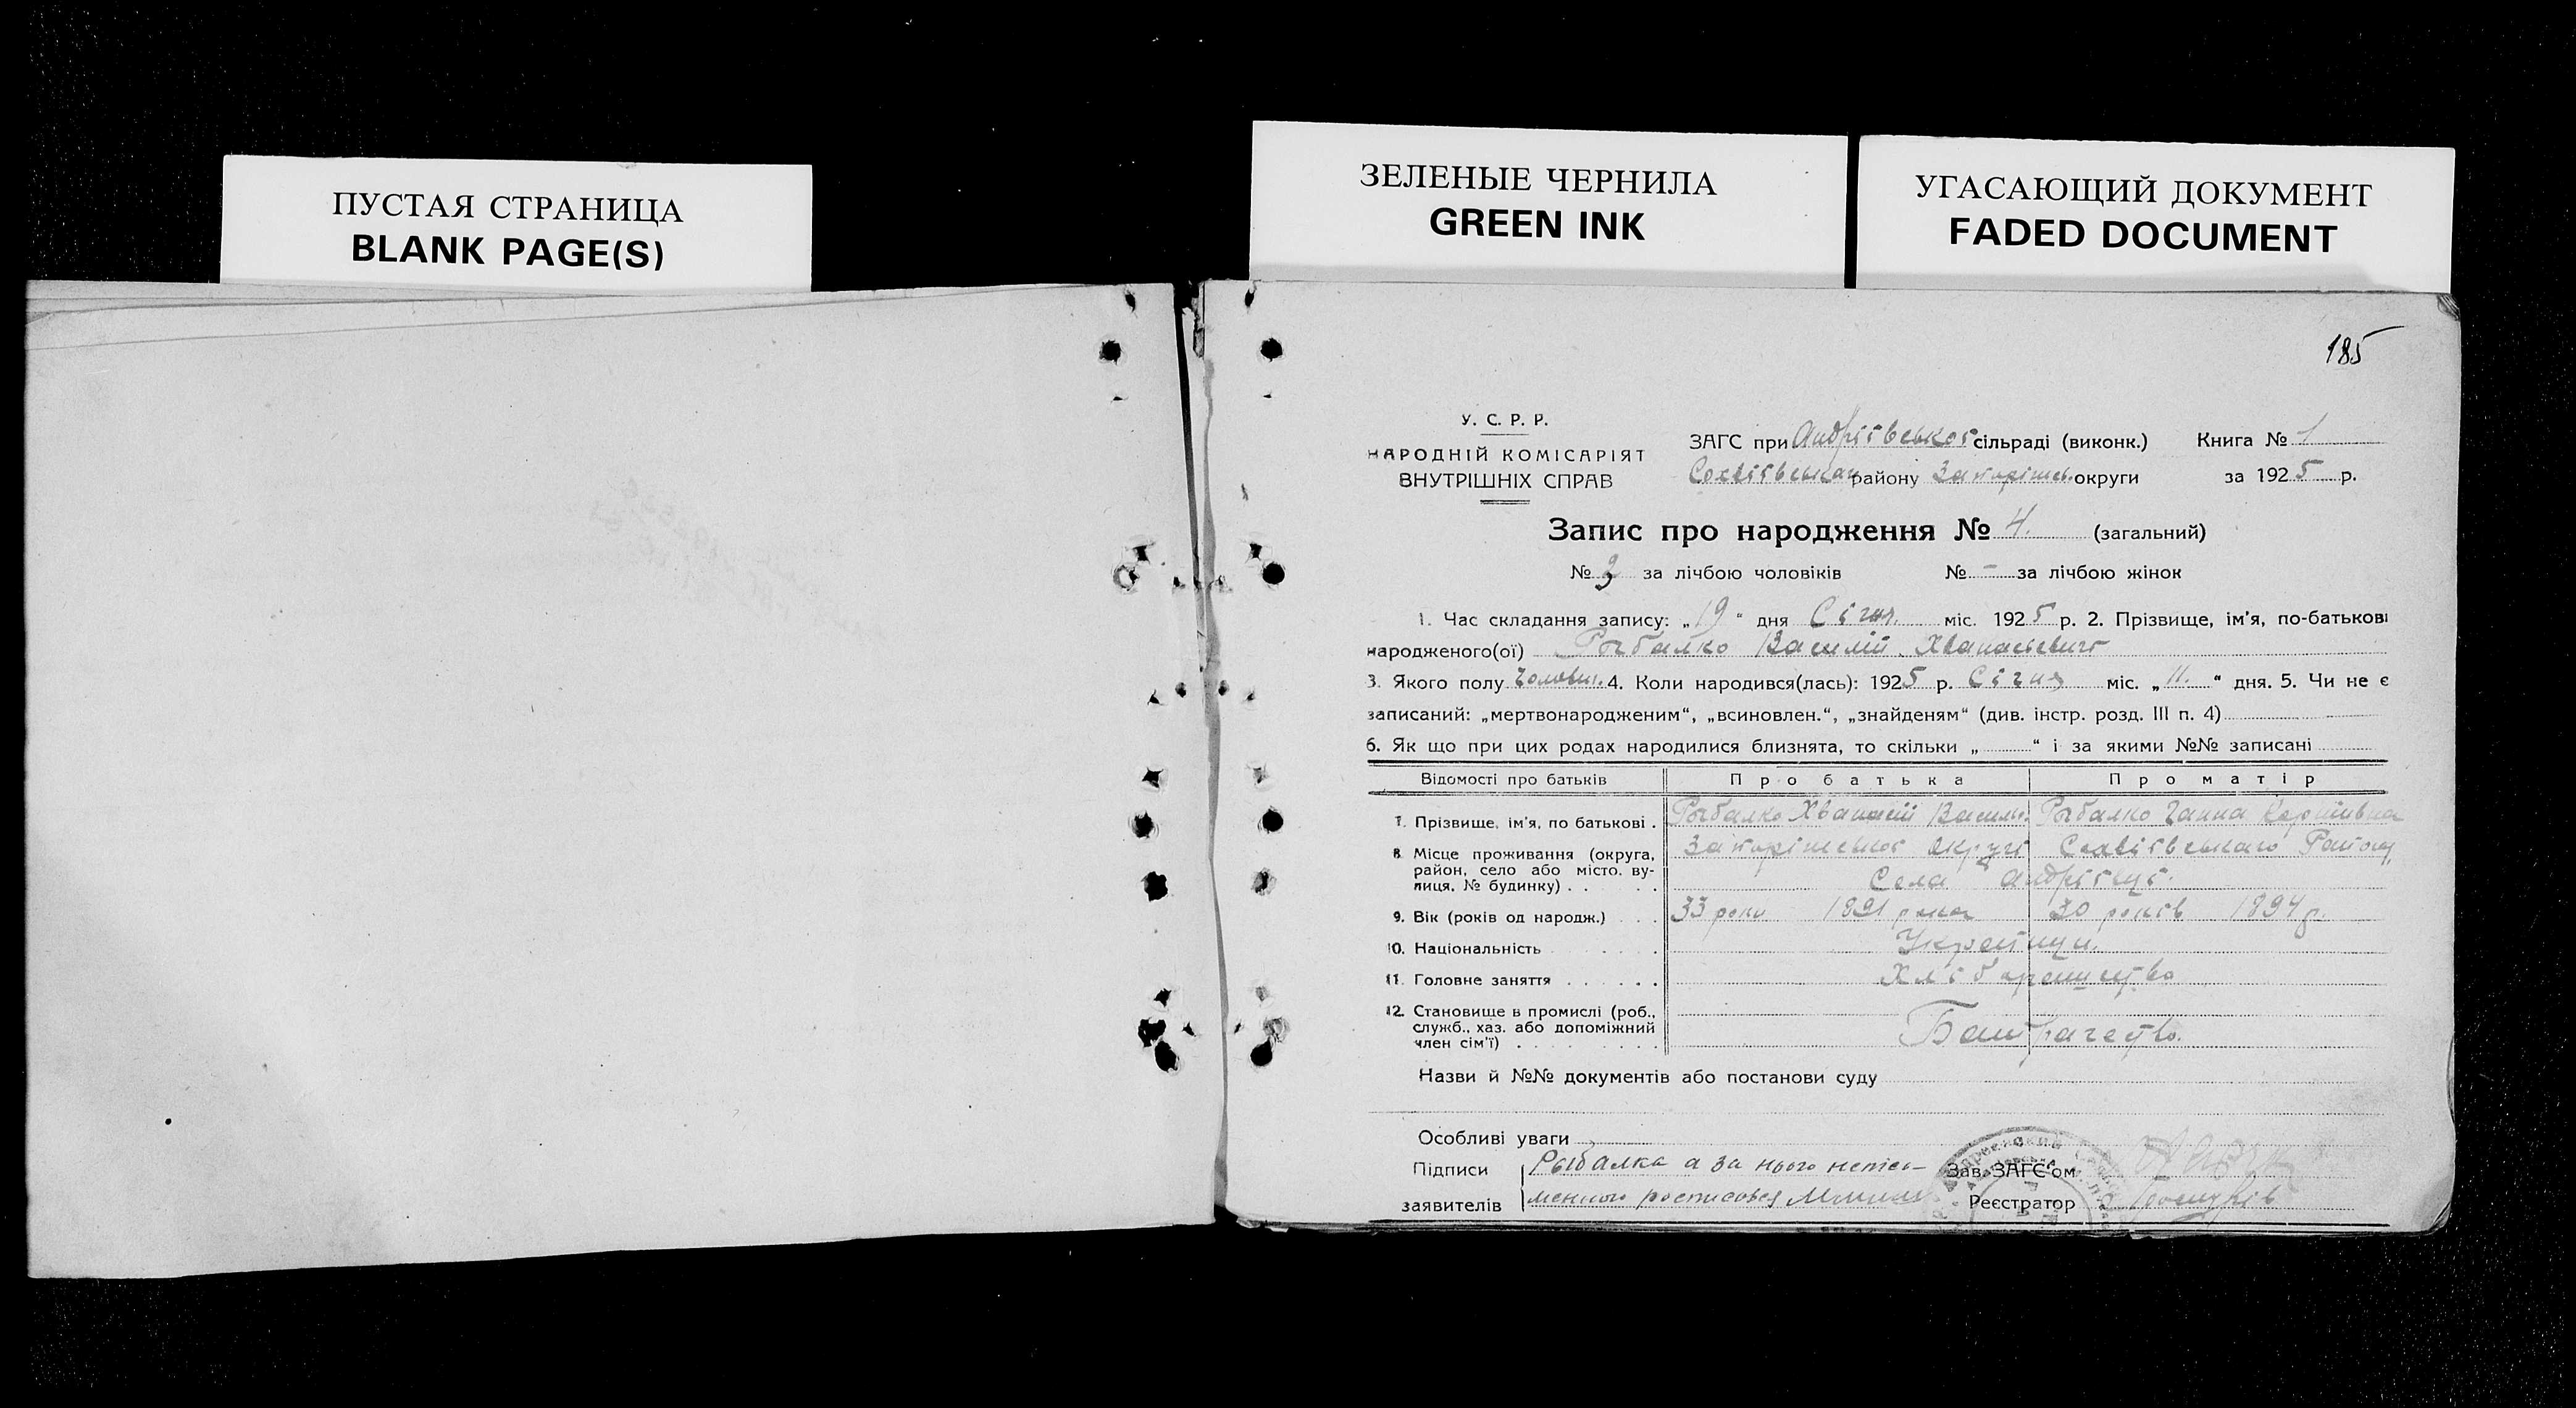 ПУСТАЯ СТРАНИЦА
BLANK PAGE(S)
ЗЕЛЕНЫЕ ЧЕРНИЛА
GREEN INK
УГАСАЮЩИЙ ДОКУМЕНТ
FADED DOCUMENT
185
У. С. Р. Р.
НАРОДНІЙ КОМІСАРІЯТ
ВНУТРІШНІХ СПРАВ
ЗАГС при Андріївської сільраді (виконк.) Книга № 1
району Запоріжсь. округи за 1925 р.
Запис про народження № 4. (загальний)
№ 3 за лічбою чоловіків № - за лічбою жінок
1. Час складання запису: „19“ дня Січня. міс. 1925 р. 2. Прізвище, ім'я, по-батькові
народженого(ої) Рыбалко Василій Хванасьевич
3. Якого полу Чоловіч. 4. Коли народився(лась): 1925 р. Січня міс. „11.“ дня. 5. Чи не є
записаний: „мертвонародженим“, „всиновлен.“, „знайденям“ (див. інстр. розд. III п. 4)
6. Як що при цих родах народилися близнята, то скільки „ “ і за якими №№ записані
Відомості про батьків Про батька Про матір
7. Прізвище, ім'я, по батькові . Рыбалко Хванасій Василь. Рыбалко Ганна
8. Місце проживання (округа, район, село або місто, вулиця, № будинку) . . Запоріжської округі Району
Села Андріївці.
9. Вік (років од народж.) . . . 33 роки 1891 рока 30 років 1894 р.
10. Національність . . . . Українци.
11. Головне заняття . . . . . . Хліборобство
12. Становище в промислі (роб.,
служб., хаз. або допоміжний
член сім'ї) . . . . . . Батрачество.
Назви й №№ документів або постанови суду
Особливі уваги
Підписи Рыбалка а за нього непись- Зав. ЗАГС'ом
заявителів менного росписовся Реєстратор